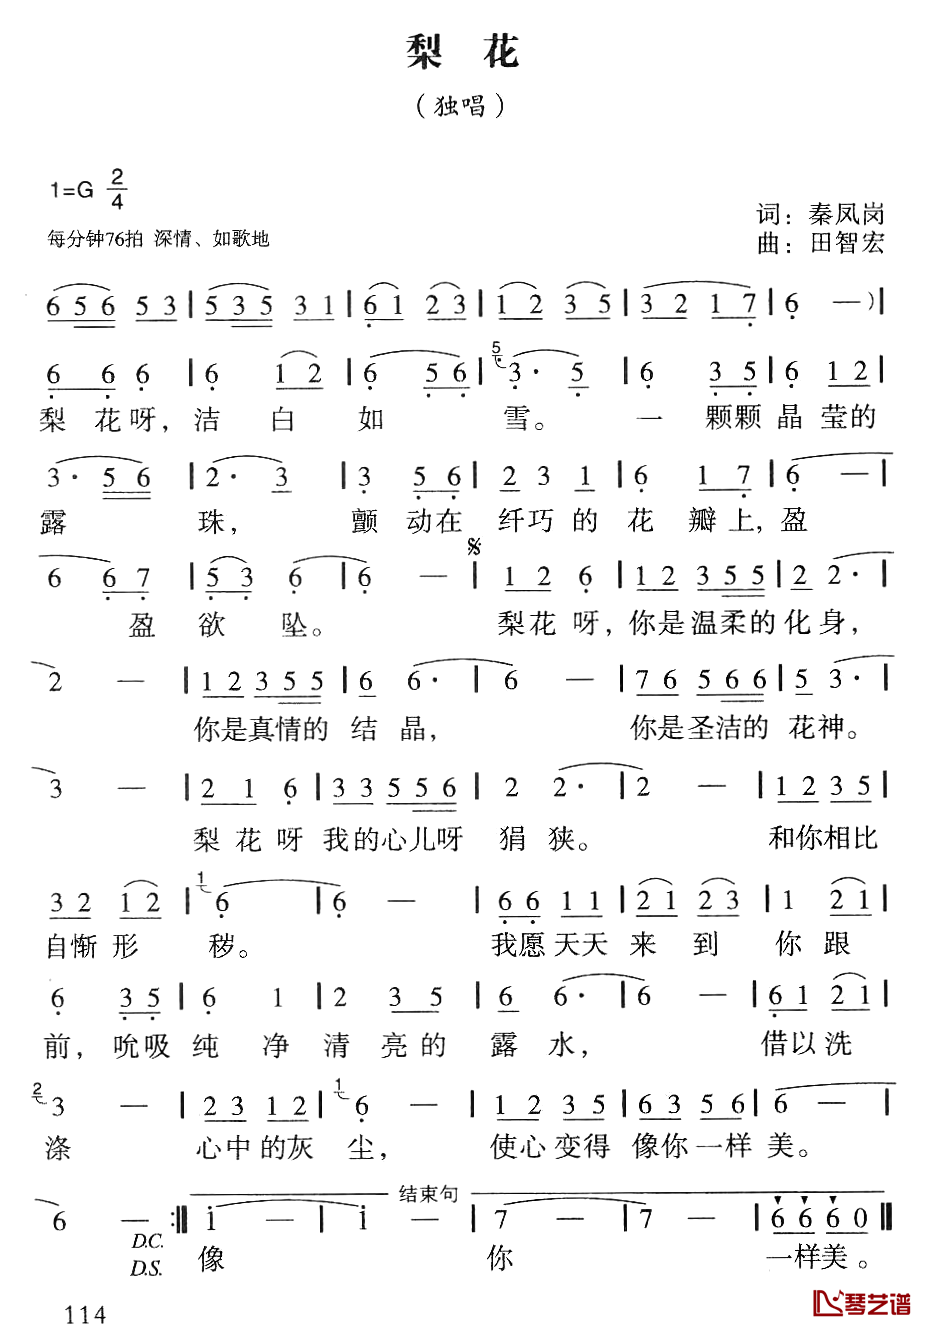 梨 花
（独唱）
1=G 2/4
词：秦凤岗
每分钟76拍 深情、如歌地
曲：田智宏
6 5 6 5 3 | 5 3 5 3 1 | 6 1 2 3 | 1 2 3 5 | 3 2 1 7 | 6 — )|
6 6 6 | 6 1 2 | 6 5 6 | 5 3· 5 | 6 3 5 | 6 1 2 |
梨 花 呀， 洁 白 如 雪。 一 颗颗 晶 莹的
3· 5 6 | 2· 3 | 3 5 6 | 2 3 1 | 6 1 7 | 6 — |
露 珠， 颤 动在 纤巧 的 花 瓣上，盈
6 6 7 | 5 3 6 | 6 — | 1 2 6 | 1 2 3 5 5 | 2 2· |
盈 欲 坠。 梨花 呀，你是温柔的化身，
2 — | 1 2 3 5 5 | 6 6· | 6 — | 7 6 5 6 6 | 5 3· |
你是真情的 结 晶， 你是圣洁的 花神。
3 — | 2 1 6 | 3 3 5 5 6 | 2 2· | 2 — | 1 2 3 5 |
梨 花 呀 我的心儿呀 狷 狭。 和你相比
3 2 1 2 | 1 6 | 6 — | 6 6 1 1 | 2 1 2 3 | 1 2 1 |
自惭 形 秽。 我愿天天 来 到 你 跟
6 3 5 | 6 1 | 2 3 5 | 6 6· | 6 — | 6 1 2 1 |
前，吮吸 纯 净 清 亮的 露 水， 借以洗
2 3 — | 2 3 1 2 | 1 6 — | 1 2 3 5 | 6 3 5 6 | 6 — |
涤 心中 的灰 尘， 使心变得 像你一样 美。
结束句
6 — :‖ i — | i — | 7 — | 7 — | 6 6 6 0 ‖
D.C.
D.S.
像 你 一样美。
114
琴艺谱